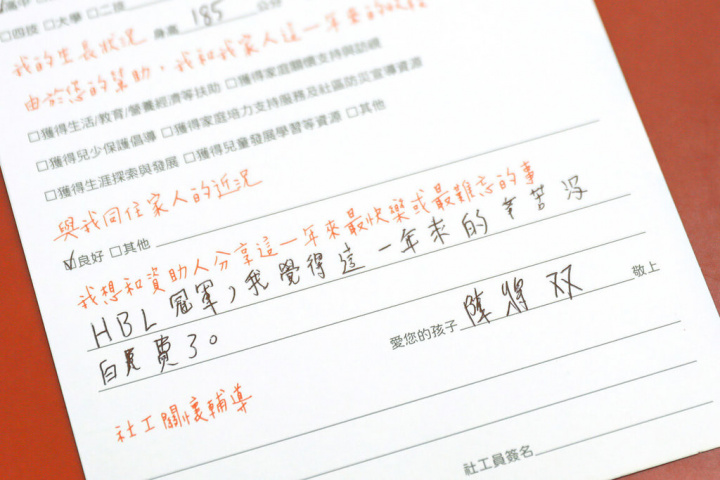 □四技 □大學 □二技
身高 185 公分
我的生長狀況
由於您的幫助,我和我家人這一年來的
□獲得生活/教育/營養經濟等扶助 □獲得家庭關懷支持與訪視
□獲得兒少保護倡導 □獲得家庭培力支持服務及社區防災宣導資源
□獲得生涯探索與發展 □獲得兒童發展學習等資源 □其他
與我同住家人的近況
☑良好 □其他
我想和資助人分享這一年來最快樂或最難忘的事
HBL冠軍,我覺得這一年來的辛苦沒
白費了。
愛您的孩子 陳將双 敬上
社工關懷輔導
社工員簽名